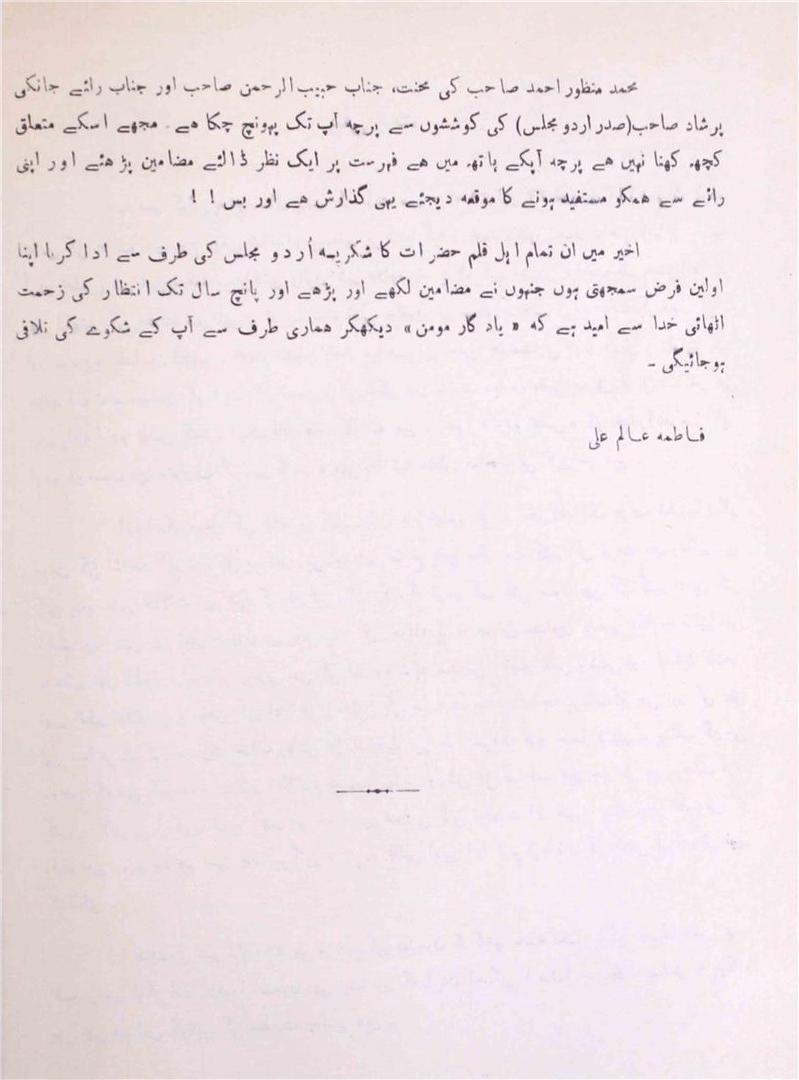 محمد منظور احمد صاحب کی محنت، جناب حبیب الرحمن صاحب اور جناب رائے جانکی
پرشاد صاحب (صدر اردو مجلس) کی کوششوں سے پرچہ آپ تک پہونچ چکا ھے ۔ مجھے اسکے متعلق
کچھہ کھنا نہیں ھے پرچہ آپکے ہاتھہ میں ھے فہرست پر ایک نظر ڈالئے مضامین پڑھئے اور اپنی
رائے سے ھمکو مستفید ہونے کا موقعہ دیجئے یہی گذارش ھے اور بس ! !
اخیر میں ان تمام اہل قلم حضرات کا شکریہ اُردو مجلس کی طرف سے ادا کرنا اپنا
اولین فرض سمجھتی ہوں جنہوں نے مضامین لکھے اور پڑھے اور پانچ سال تک انتظار کی زحمت
اٹھائی خدا سے امید ہے کہ « یادگار مومن » دیکھکر ھماری طرف سے آپ کے شکوے کی تلافی
ہوجائیگی ۔
فاطمہ عالم علی